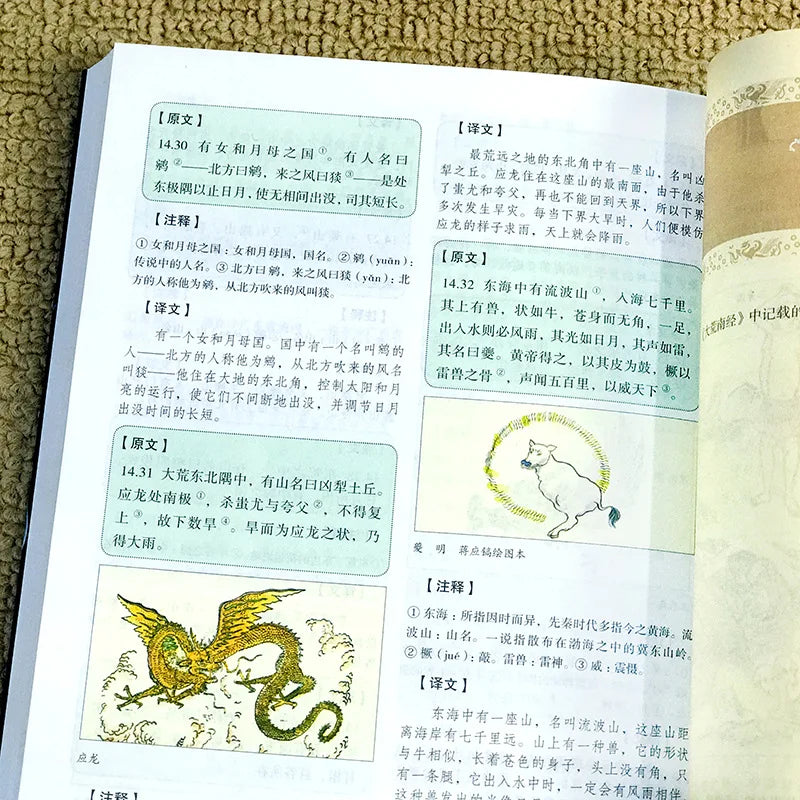 【原文】
14.30 有女和月母之国①。有人名曰
鹓②——北方曰鹓，来之风曰㹂③——是处
东极隅以止日月，使无相间出没，司其短长。
【注释】
①女和月母之国：女和月母国，国名。②鹓（yuān）：
传说中的人名。③北方曰鹓，来之风曰㹂（yǎn）：北
方的人称他为鹓，从北方吹来的风叫㹂。
【译文】
有一个女和月母国。国中有一个名叫鹓的
人——北方的人称他为鹓，从北方吹来的风名
叫㹂——他住在大地的东北角，控制太阳和月
亮的运行，使它们不间断地出没，并调节日月
出没时间的长短。
【原文】
14.31 大荒东北隅中，有山名曰凶犁土丘。
应龙处南极①，杀蚩尤与夸父②，不得复
上③，故下数旱④。旱而为应龙之状，乃
得大雨。
应龙
【注释】
【译文】
最荒远之地的东北角中有一座山，名叫凶
犁之丘。应龙住在这座山的最南面，由于他杀
了蚩尤和夸父，再也不能回到天界，所以下界
多次发生旱灾。每当下界大旱时，人们便模仿
应龙的样子求雨，天上就会降雨。
【原文】
14.32 东海中有流波山①，入海七千里。
其上有兽，状如牛，苍身而无角，一足，
出入水则必风雨，其光如日月，其声如雷，
其名曰夔。黄帝得之，以其皮为鼓，橛以
雷兽之骨②，声闻五百里，以威天下③。
夔 明 蒋应镐绘图本
【注释】
①东海：所指因时而异，先秦时代多指今之黄海。流
波山：山名。一说指散布在渤海之中的冀东山岭。
②橛（jué）：敲。雷兽：雷神。③威：震慑。
【译文】
东海中有一座山，名叫流波山，这座山距
离海岸有七千里远。山上有一种兽，它的形状
与牛相似，长着苍色的身子，头上没有角，只
有一条腿，它出入水中时，一定会有风雨相伴
《大荒南经》中记载的